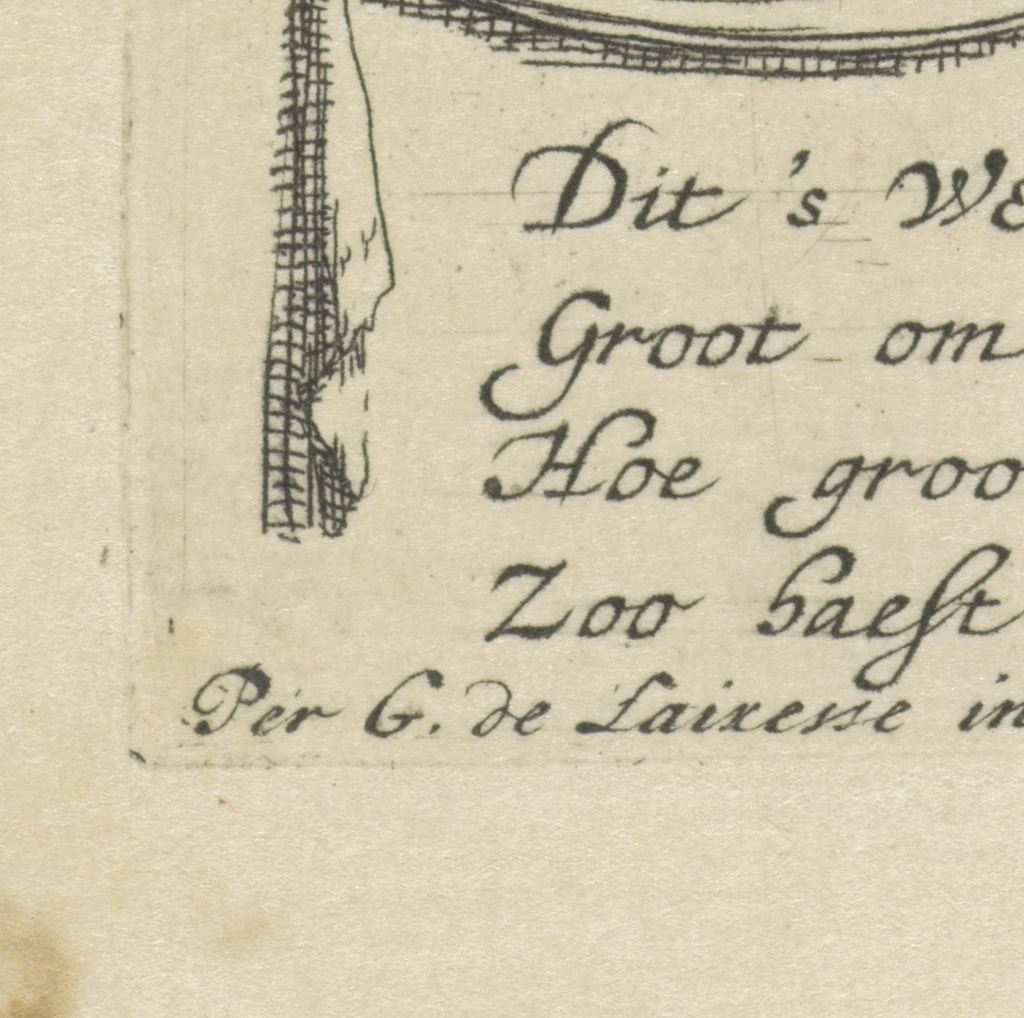 Dit 's We
Groot om
Hoe groo
Zoo haest
Per G. de Lairesse in